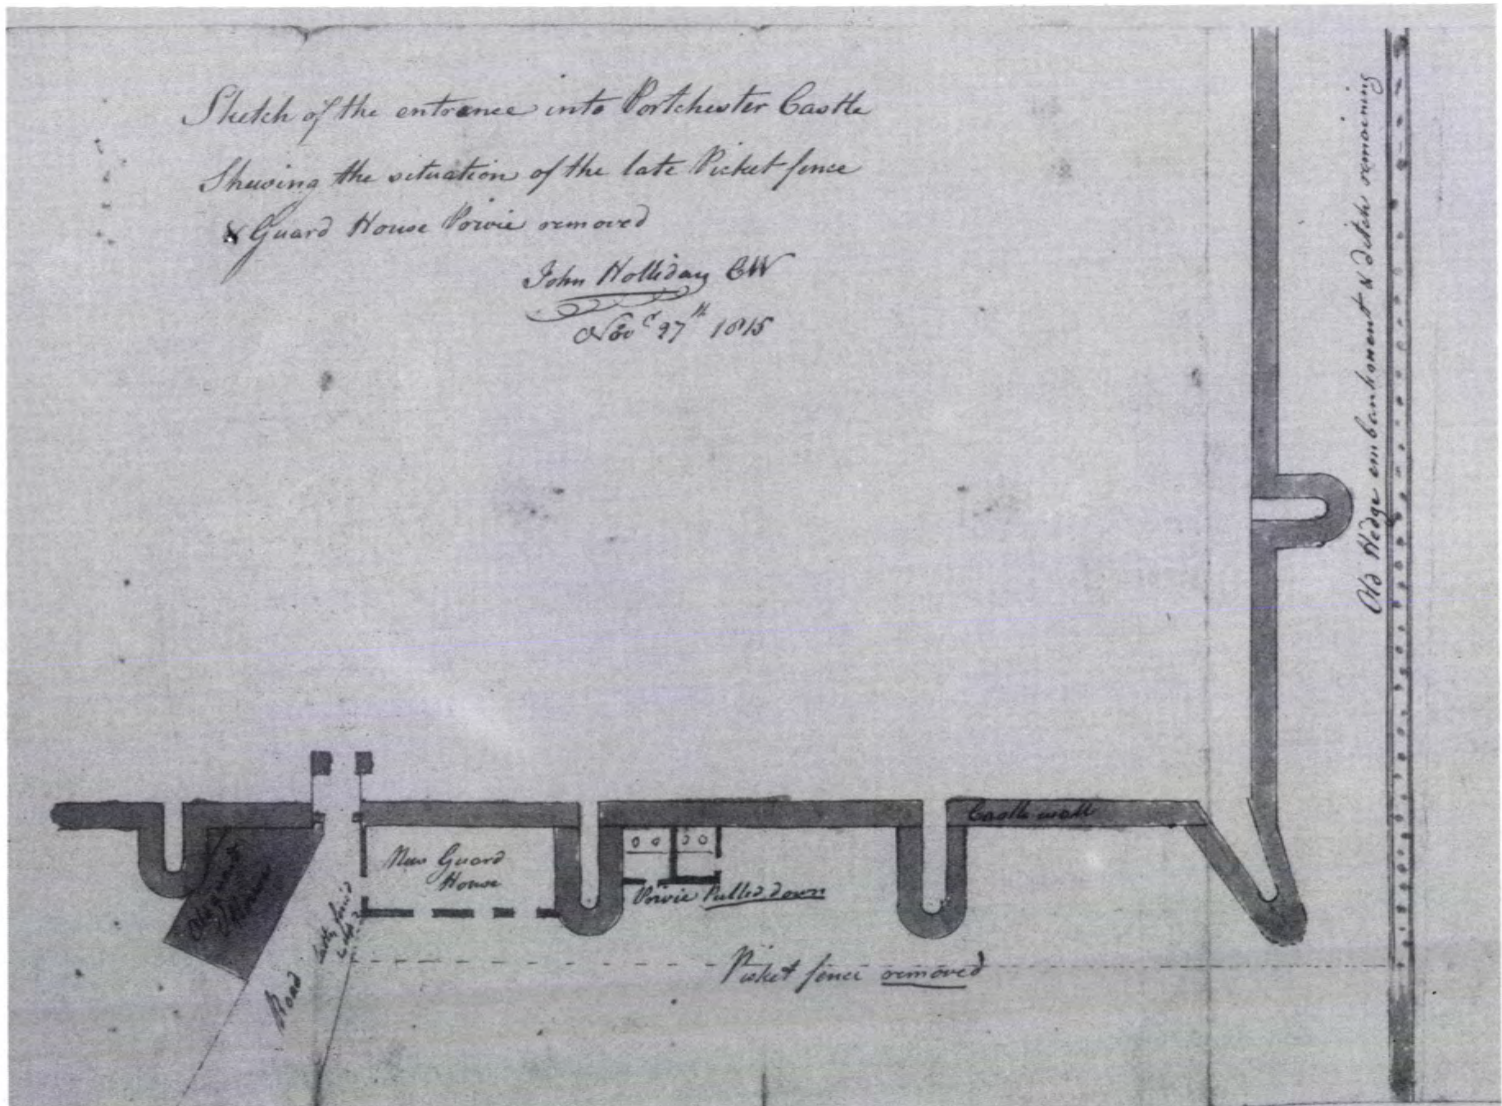 Sketch of the entrance into Portchester Castle
Shewing the situation of the late Picket fence
& Guard House Privie removed
John Holliday CW
Nov.r 27th 1815
Old Hedge embankment & ditch remaining
Castle wall
New Guard
House
Old guard
House
Privie Pulled down
Road
Picket fence removed